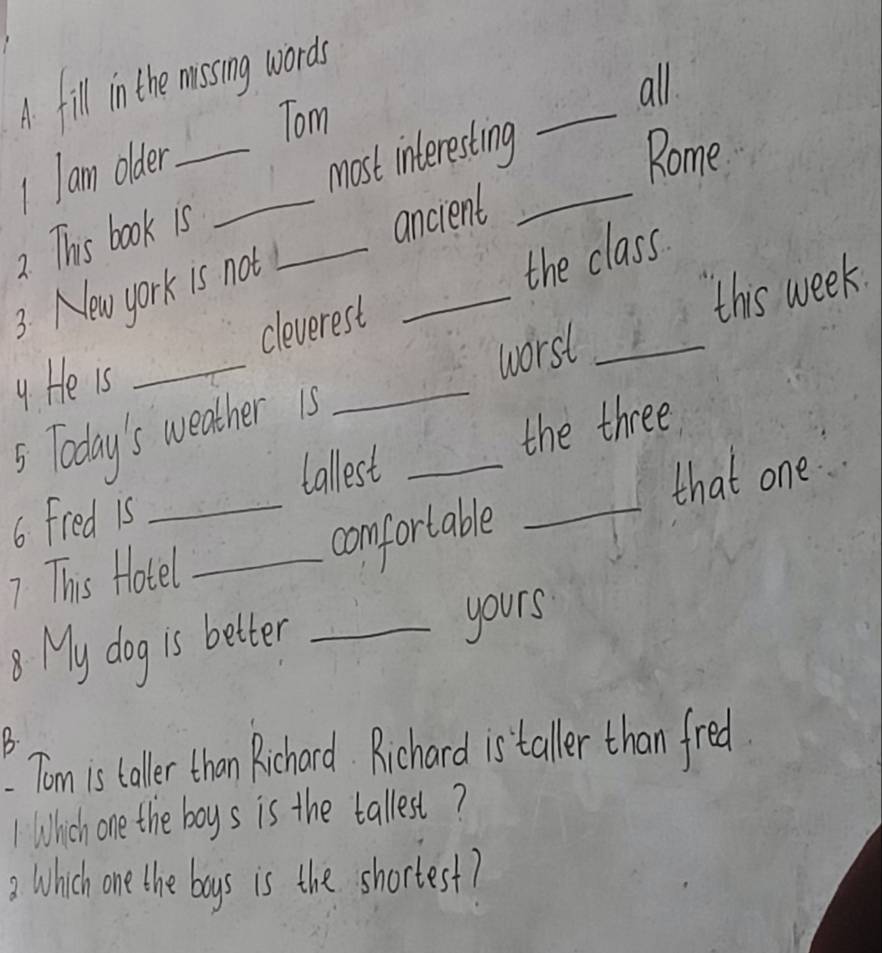 A. fill in the missing words
1 I am older ____ Tom
2. This book is ____ most interesting ____ all.
3. New york is not ____ ancient ____ Rome.
4. He is ____ cleverest ____ the class.
5 Today's weather is ____ worst ____ this week.
6 Fred is ____ tallest ____ the three.
7 This Hotel ____ comfortable ____ that one.
8. My dog is better ____ yours.
B.
- Tom is taller than Richard. Richard is taller than fred.
1 Which one the boy s is the tallest ?
2. Which one the boys is the shortest?